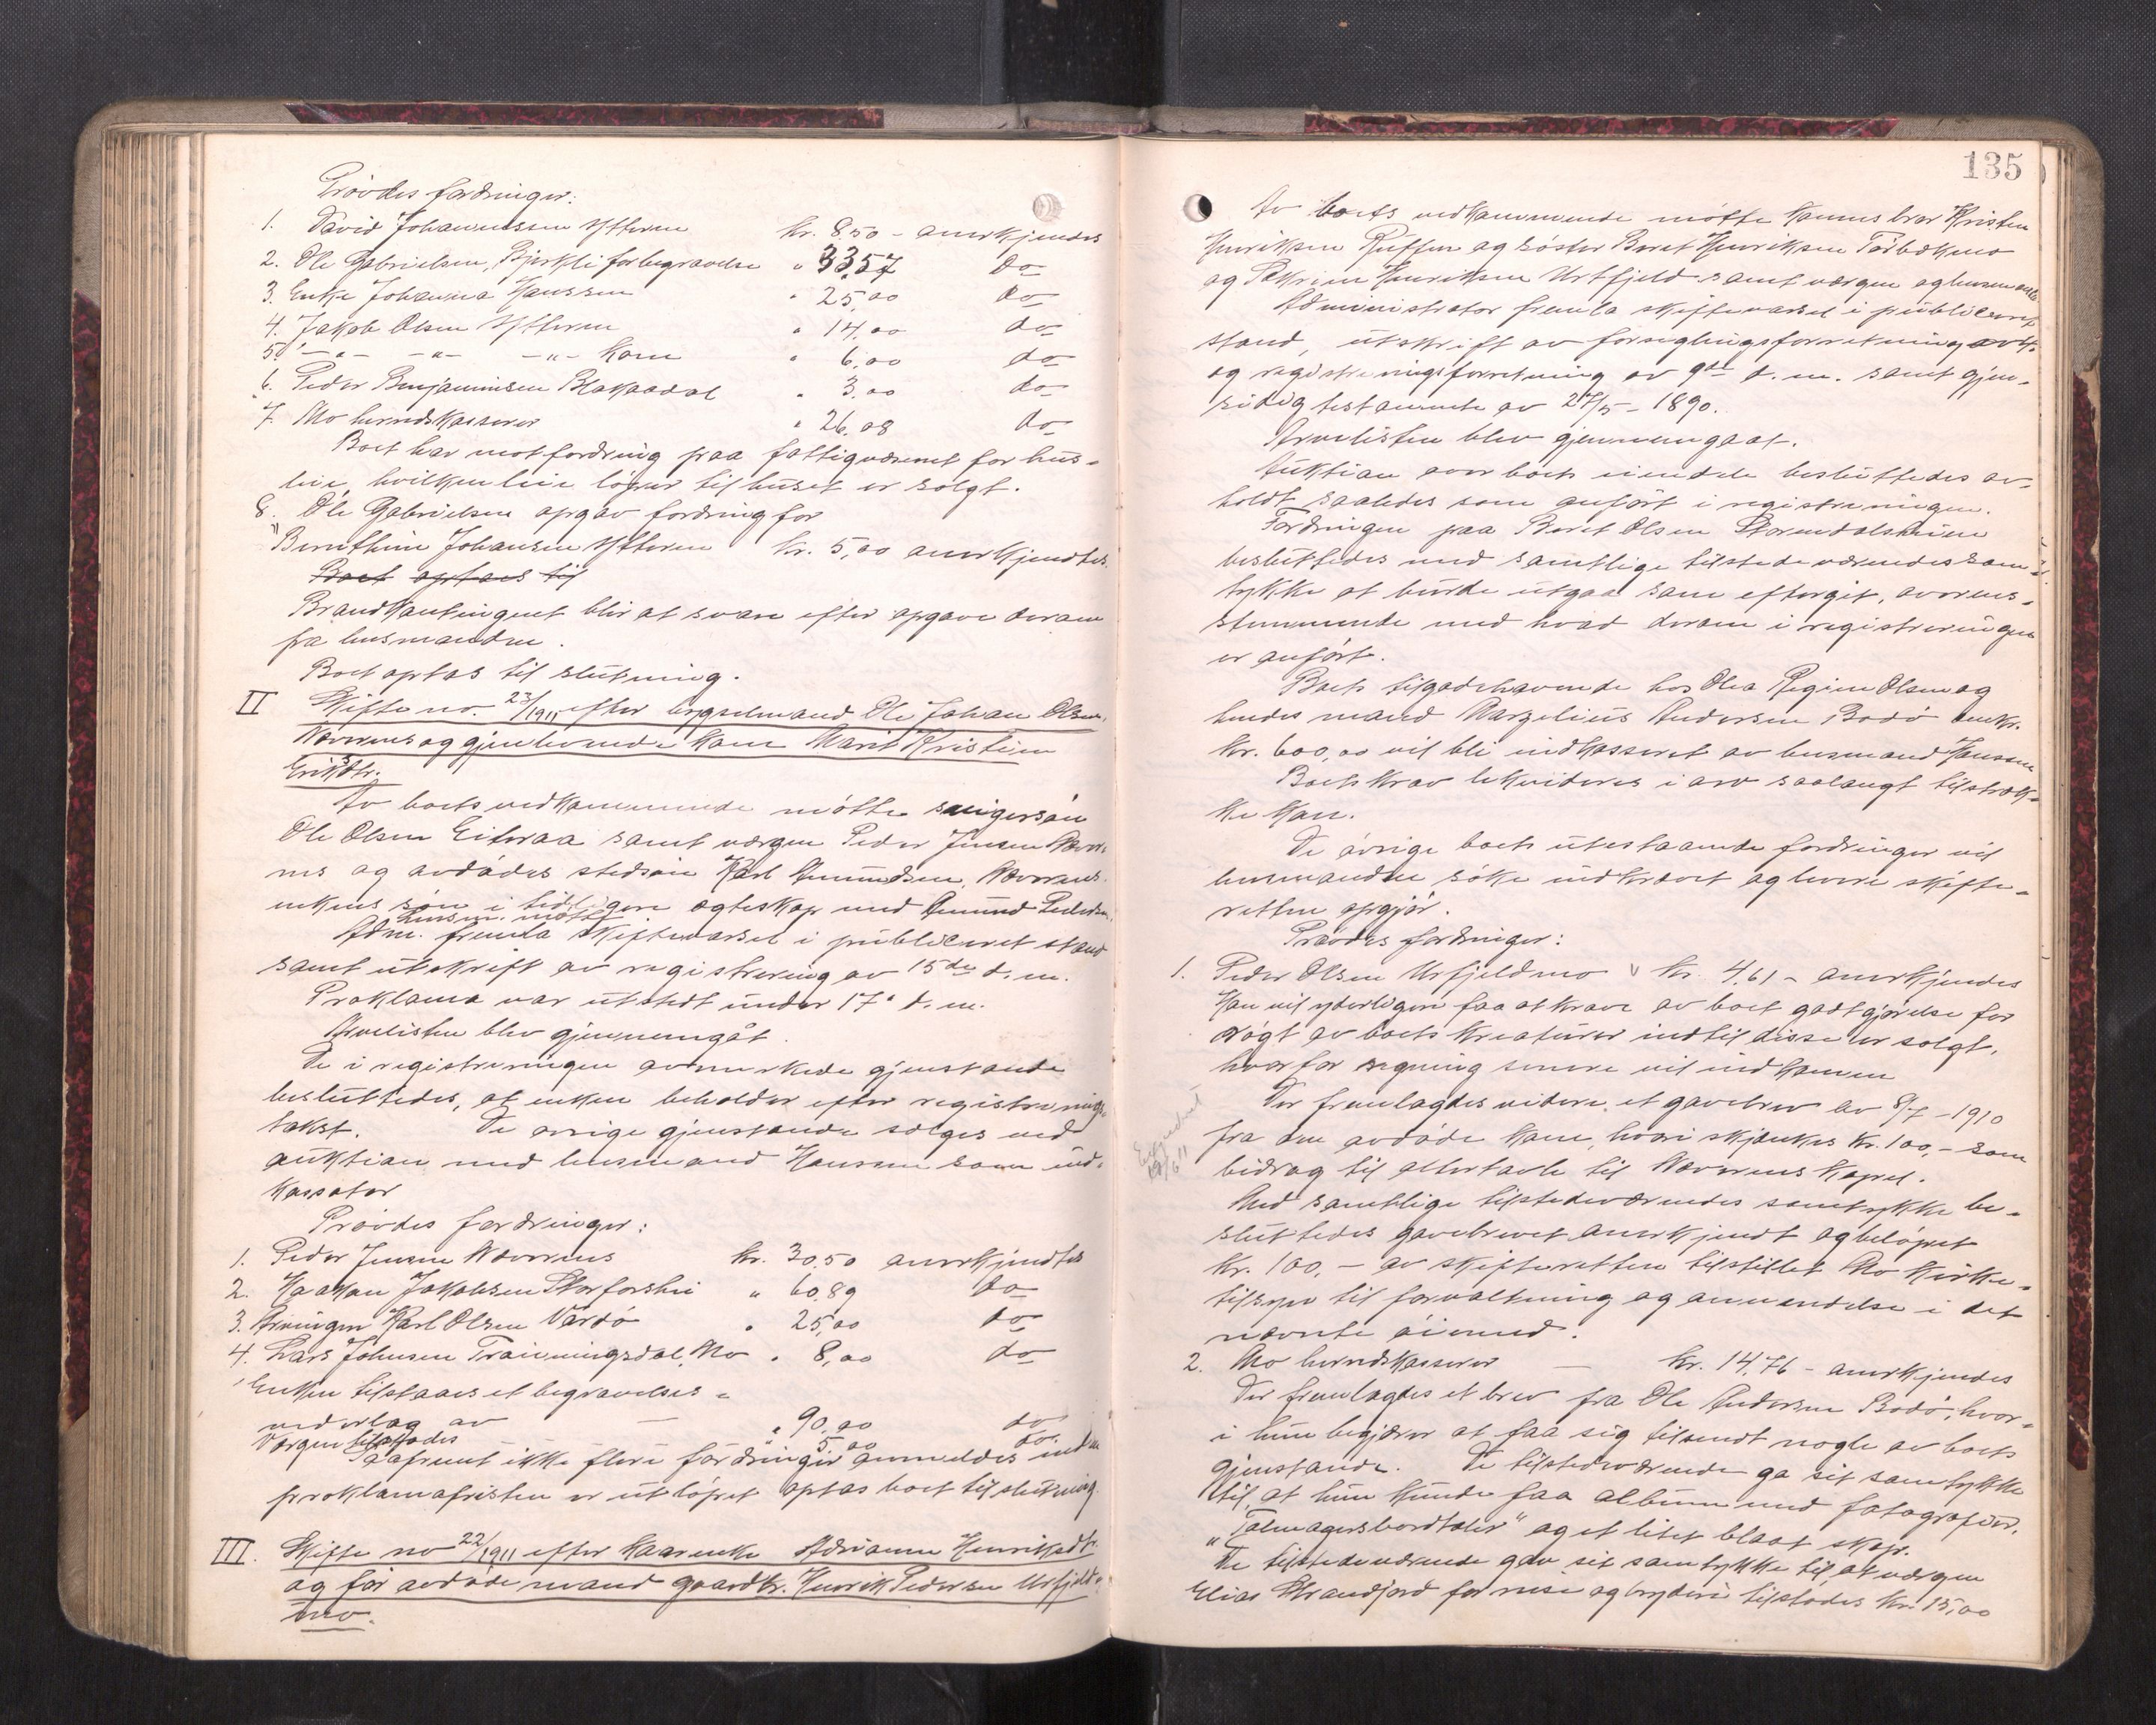 Prövdes fordringer:
1. David Johannessen Ytteren kr. 8.50 - anerkjendes
2. Ole Gabrielsen, Bjerkli for begravelse " 33.57 do
3. Enke Johanna Hanssen " 25,00 do
4. Jakob Olsen Ytteren " 14,00 do
5. -"- -"- -"- kone " 6,00 do
6. Peder Benjaminsen Blakaadal " 3,00 do
7. Mo herredskasserer " 26,08 do
Boet har motfordring paa fattigvæsenet for hus-
leie, hvilken leie löper til huset er solgt.
8. Ole Gabrielsen opgav fordring for
Berntine Johansen Ytteren kr. 5,00 anerkjendtes.
Boet optaes til
Brandkontingent blir at svare efter opgave derom
fra lensmanden.
Boet optas til slutning.
II Skifte no. 23/1911 efter bygselmand Ole Johan Olsen,
Nævernes og gjenlevende kone Marit Kristine
Eriksdtr.
Av boets vedkommende mötte svigersön
Ole Olsen Eiteraa samt værgen Peder Jensen Næver-
nes og avdödes stedsön Karl Amundsen, Nævernes
enkens sön i tidligere egteskap med Amund Pedersen.
Lensm. mötte.
Adm. fremla skiftevarsel i publiceret stand
samt utskrift av registrering av 15de d.m.
Proklama var utstedt under 17. d.m.
Arvelisten blev gjennemgåt.
De i registreringen avmerkede gjenstande
besluttedes, at enken beholder efter registrerings-
takst. De övrige gjenstande sælges ved
auktion med lensmand Hanssen som ind-
kassator
Prövdes fordringer:
1. Peder Jensen Nævernes kr. 30.50 anerkjendtes
2. Haakon Jakobsen Storforshei " 60.89 do
3. Arvingen Karl Olsen Vardö " 25,00 do
4. Lars Johnsen Trainingsdal, Mo " 8,00 do
Enken tilstaaes et begravelses-
vederlag av — " 90,00 do
Værgen tilstodes — " 5,00 do.
Saafremt ikke flere fordringer anmeldes inden
proklamafristen er utlöpet optas boet til slutning.
III. Skifte no 22/1911 efter kaarenke Adrianna Henriksdtr
og för avdöde mand gaardbr. Henrik Pedersen Urfjeld-
mo.
135
Av boets vedkommende mötte hennes bror Kristen
Henriksen og söster Beret Henriksen
og Henriksen Urtfjeld samt værgen og lensmand
Administrator fremla skiftevarsel i publiceret
stand, utskrift av forseglingsforretning
og registreringsforretning av 9de d.m. samt gjen-
sidig testamente av 27/5 - 1890.
Arvelisten blev gjennemgaat.
Auktion over boets eiendele besluttedes av-
holdt saaledes som anfört i registreringen.
Fordringen paa Beret Olsen Storendalsheim
besluttedes med samtlige tilstedeværendes sam-
tykke at burde utgaa som eftergit, overens-
stemmende med hvad derom i registreringen
er anfört.
Boets tilgodehavende hos Olea Regine Olsen og
hendes mand Marzelius Andersen Bodö omkr.
kr. 600,00 vil bli indkasseret av lensmand Hanssen
Boets krav likvideres i arv saalangt tilstræk-
ke kan.
De övrige boets utestaaende fordringer vil
lensmanden söke indkrævet og levere skifte-
retten opgjör.
Prövdes fordringer:
1. Peder Olsen Urfjeldmo kr. 4,61 - anerkjendes
Han vil yderligere faa at kræve av boet godtgjörelse for
rögt av boets kreaturer indtil disse er solgt,
hvorfor regning senere vil indkomme
Der fremlagdes videre et gavebrev av 8/7 - 1910
fra den avdöde kone, hvori skjænkes kr. 100,- som
bidrag til altertavle til Nævernes kapel.
Med samtlige tilstedeværendes samtykke be-
sluttedes gavebrevet anerkjendt og belöpet
kr. 100,- av skifteretten tilstillet Mo kirke-
tilsyn til forvaltning og anvendelse i det
nævnte öiemed.
19/6 11
2. Mo herredskasserer — kr. 14,76 - anerkjendes
Der fremlagdes et brev fra Olea Andersen Bodö, hvor-
i hun begjærer at faa sig tilsendt nogle av boets
gjenstande. De tilstedeværende ga sit samtykke
til, at hun kunde faa album med fotografier,
"Talmagers bordtaler" og et litet blaat skap.
De tilstedeværende gav sit samtykke til, at værgen
Elias Strandjord for reise og bryderi tilstodes kr. 15,00